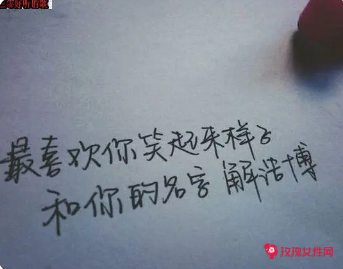 最喜欢你笑起来样子
和你的名字 解浩博
玫瑰女性网